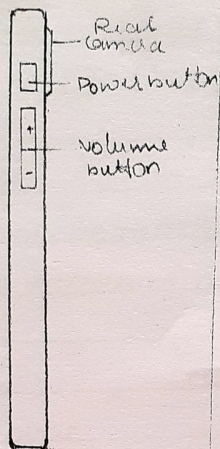 Rear
camera
Power button
+
volume
button
-